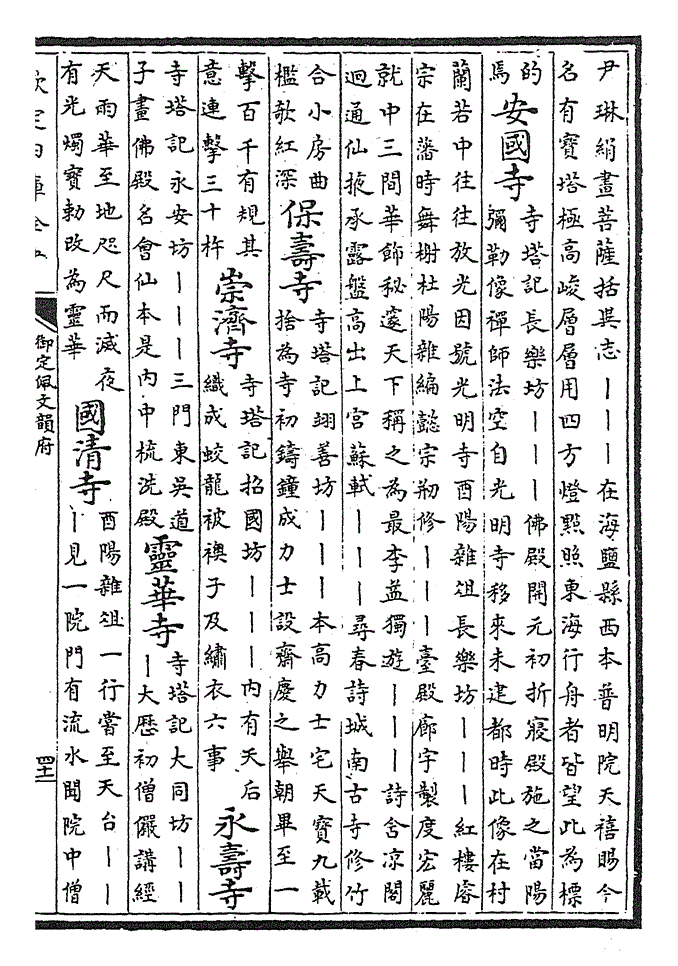 尹琳絹畫菩薩括異志｜｜｜在海鹽縣西本普明院天禧賜今
名有寳塔極高峻層層用四方燈㸃照東海行舟者皆望此為標
的
焉
安國寺
寺塔記長樂坊｜｜｜佛殿開元初折寢殿施之當陽
彌勒像禪師法空自光明寺移來未建都時此像在村
蘭若中往往放光因號光明寺酉陽雜俎長樂坊｜｜｜紅樓睿
宗在藩時舞榭杜陽雜編懿宗剏修｜｜｜臺殿廊宇製度宏麗
就中三間華飾秘邃天下稱之為最李益獨遊｜｜｜詩舍凉閣
迥通仙掖承露盤高出上宮蘇軾｜｜｜尋春詩城南古寺修竹
合小房曲
檻欹紅深
保壽寺
寺塔記翊善坊｜｜｜本髙力士宅天寳九載
捨為寺初鑄鐘成力士設齋慶之舉朝畢至一
擊百千有規其
意連擊三十杵
崇濟寺
寺塔記招國坊｜｜｜内有天后
織成蛟龍被襖子及繡衣六事
永壽寺
寺塔記永安坊｜｜｜三門東吳道
子畫佛殿名會仙本是内中梳洗殿
靈華寺
寺塔記大同坊｜｜
｜大歴初僧儼講經
天雨華至地咫尺而滅夜
有光燭寳勅改為靈華
國清寺
酉陽雜俎一行嘗至天台｜｜
｜見一院門有流水聞院中僧
欽定四庫全書
御定佩文韻府